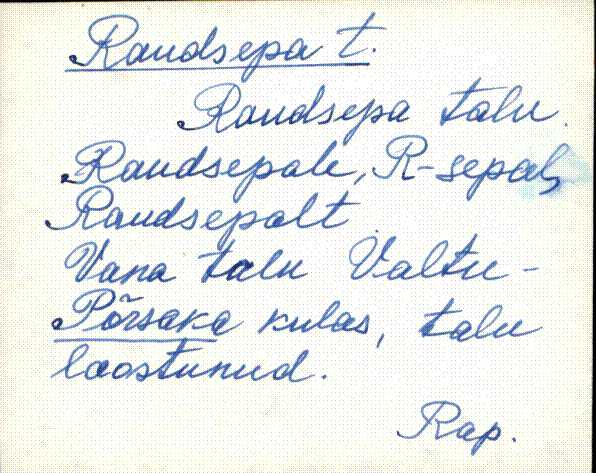 Raudsepa t.
Raudsepa talu.
Raudsepale, R-sepal,
Raudsepalt.
Vana talu Valtu-
Põrsaka kulas, talu
laostunud.
Rap.